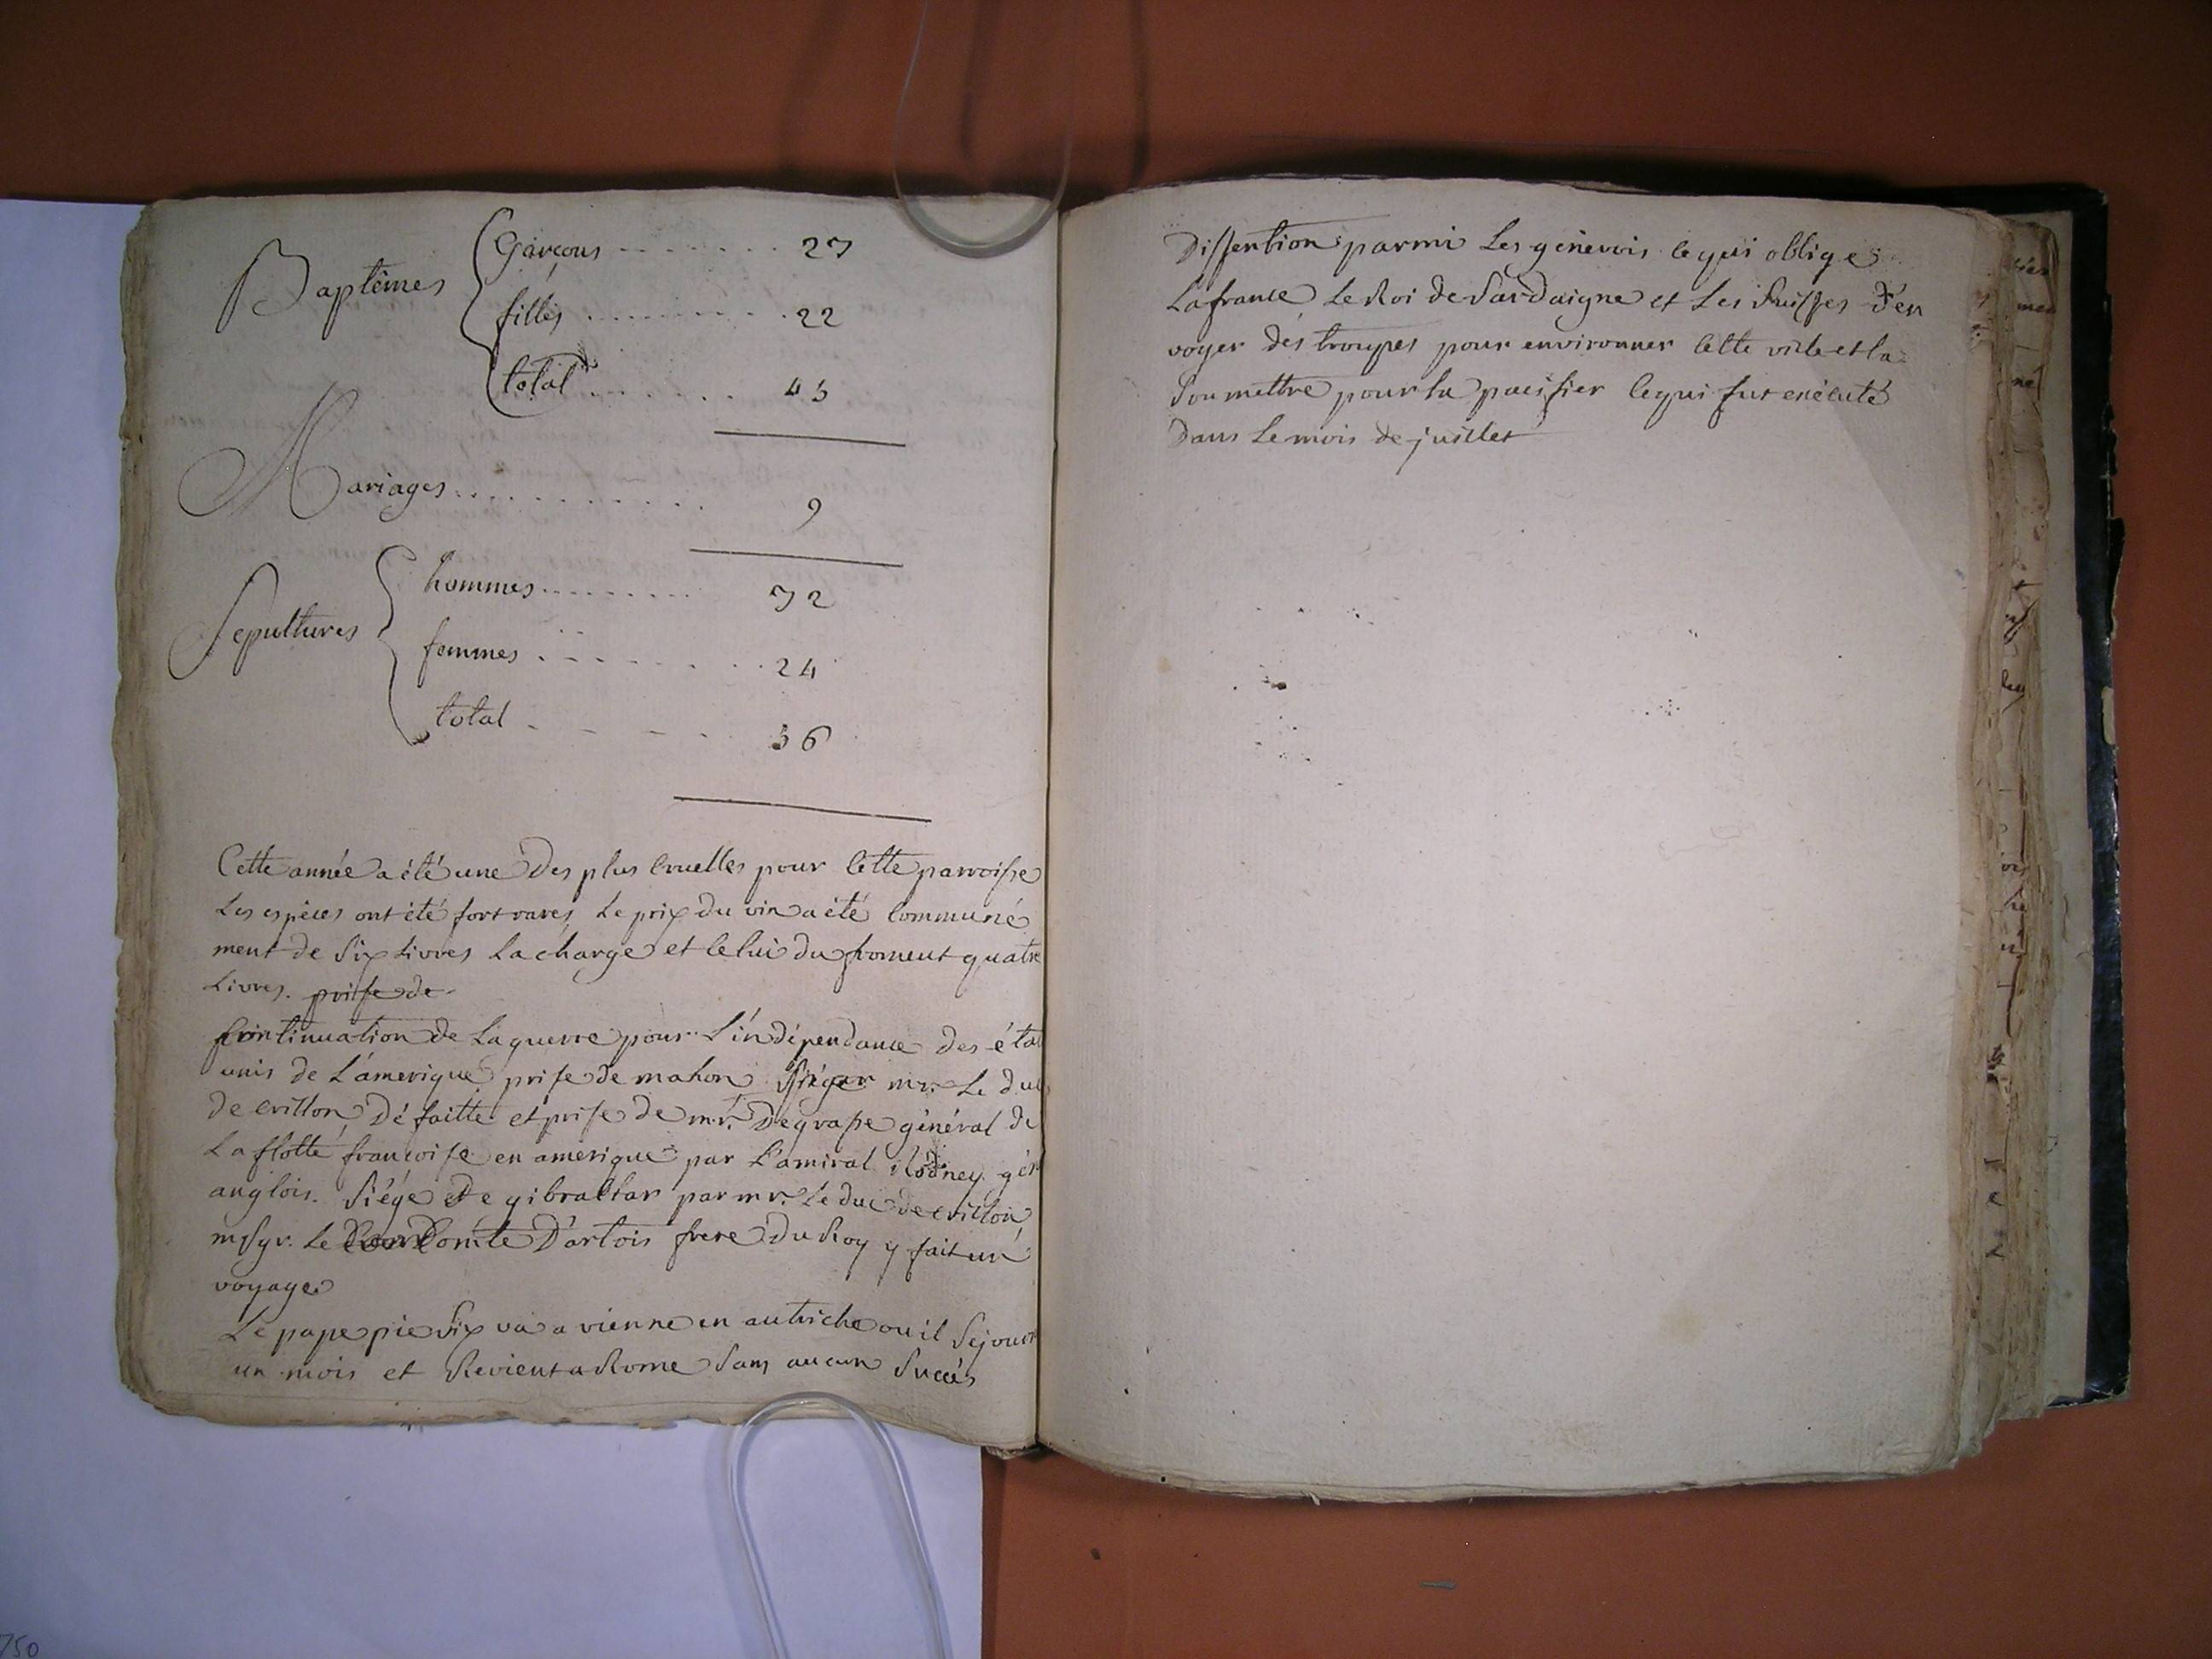 Baptêmes
Garçons - - - - - - - 23
filles - - - - - - - - - 22
total - - - - - - - 45
Mariages - - - - - - - - - - 9
Sepultures
hommes - - - - - - - - - 32
femmes - - - - - - - - 24
total - - - - 56
Cette année a été une des plus cruelles pour cette parroisse
Les espèces ont été fort rares, Le prix du vin a été communé
ment de six Livres La charge et celui du froment quatre
Livres. prise de
Continuation de La guerre pour L'indépendance des état
unis de L'amerique prise de mahon par mr. Le duc
de crillon, Défaitte et prise de mr. Degrasse général de
La flotte françoise en amerique par L'amiral Rodney gér
anglois. Siége de gibraltar par mr. Le duc de crillon,
msgr. Le Comte D'artois frere Du Roy y fait un
voyage
Le pape pie six va a vienne en autriche ou il Sejourn
un mois et Revient a Rome Sans aucun Succés
Dissention parmi Les génevois ce qui oblige
La france, Le Roi de Sardaigne et Les Suisses d'en
voyer des troupes pour environner cette ville et la
Soumettre pour la pacifier ce qui fut exécuté
Dans Le mois de juillet
750